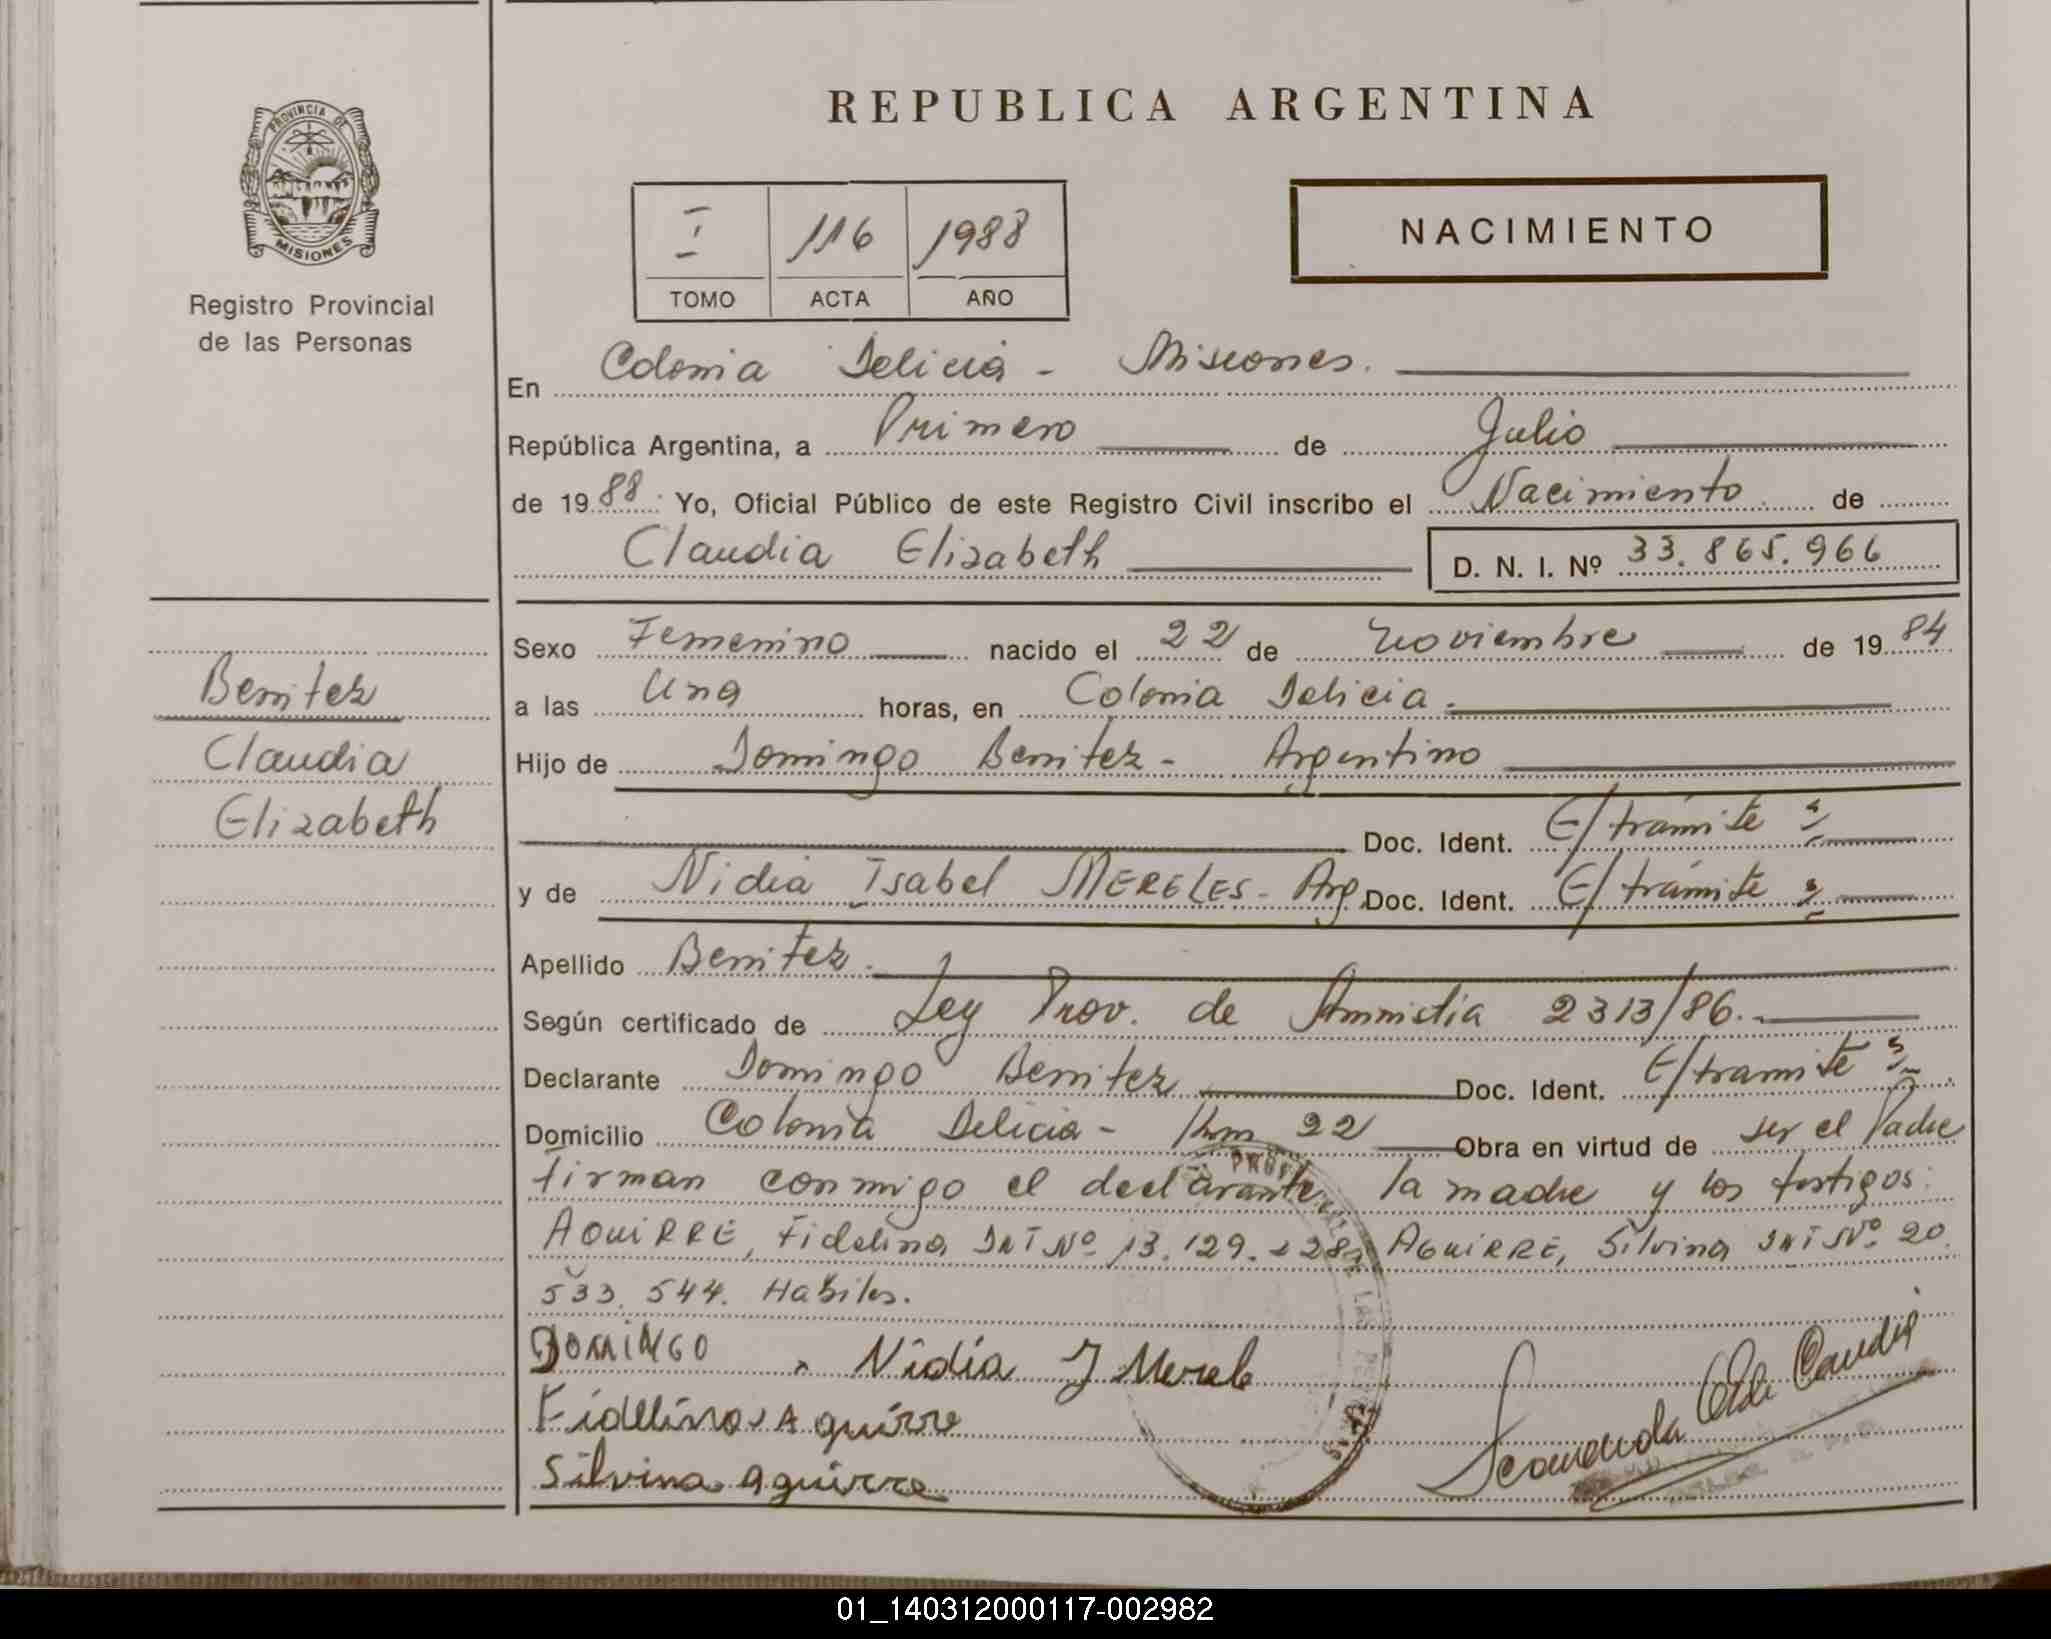 REPUBLICA ARGENTINA
PROVINCIA DE
MISIONES
Registro Provincial
de las Personas
I 116 1988
TOMO ACTA AÑO
NACIMIENTO
En Colonia Delicia - Misiones.
República Argentina, a Primero de Julio
de 1988. Yo, Oficial Público de este Registro Civil inscribo el Nacimiento de
Claudia Elizabeth D. N. I. Nº 33.865.966
Sexo Femenino nacido el 22 de Noviembre de 1984
Benitez
a las Una horas, en Colonia Delicia.
Claudia
Hijo de Domingo Benitez - Argentino
Elizabeth
Doc. Ident. E/trámite
y de Nidia Isabel MERELES - Arg. Doc. Ident. E/trámite
Apellido Benitez.
Según certificado de Ley Prov. de Amnistia 2313/86.
Declarante Domingo Benitez Doc. Ident. E/tramite
Domicilio Colonia Delicia - Km 22 Obra en virtud de ser el Padre
firman conmigo el declarante, la madre y los testigos:
AGUIRRE, Fidelina DNI Nº 13.129. AGUIRRE, Silvina DNI Nº 20.
533.544. Habiles.
DOMINGO Nidia J Merele
Fidelina Aguirre
Silvina aguirre
01_140312000117-002982